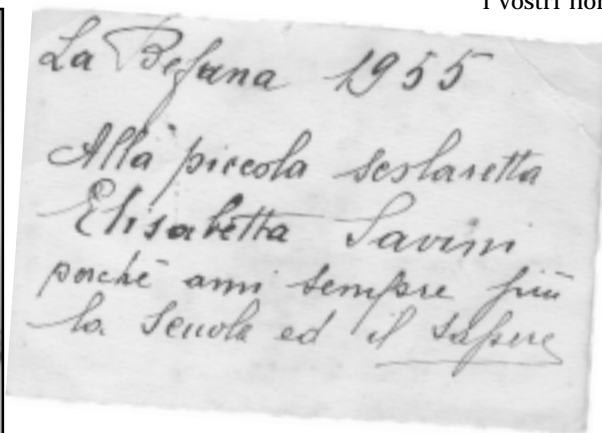 i vostri
La Befana 1955
Alla piccola scolaretta
Elisabetta Savini
perché ami sempre più
la Scuola ed il sapere